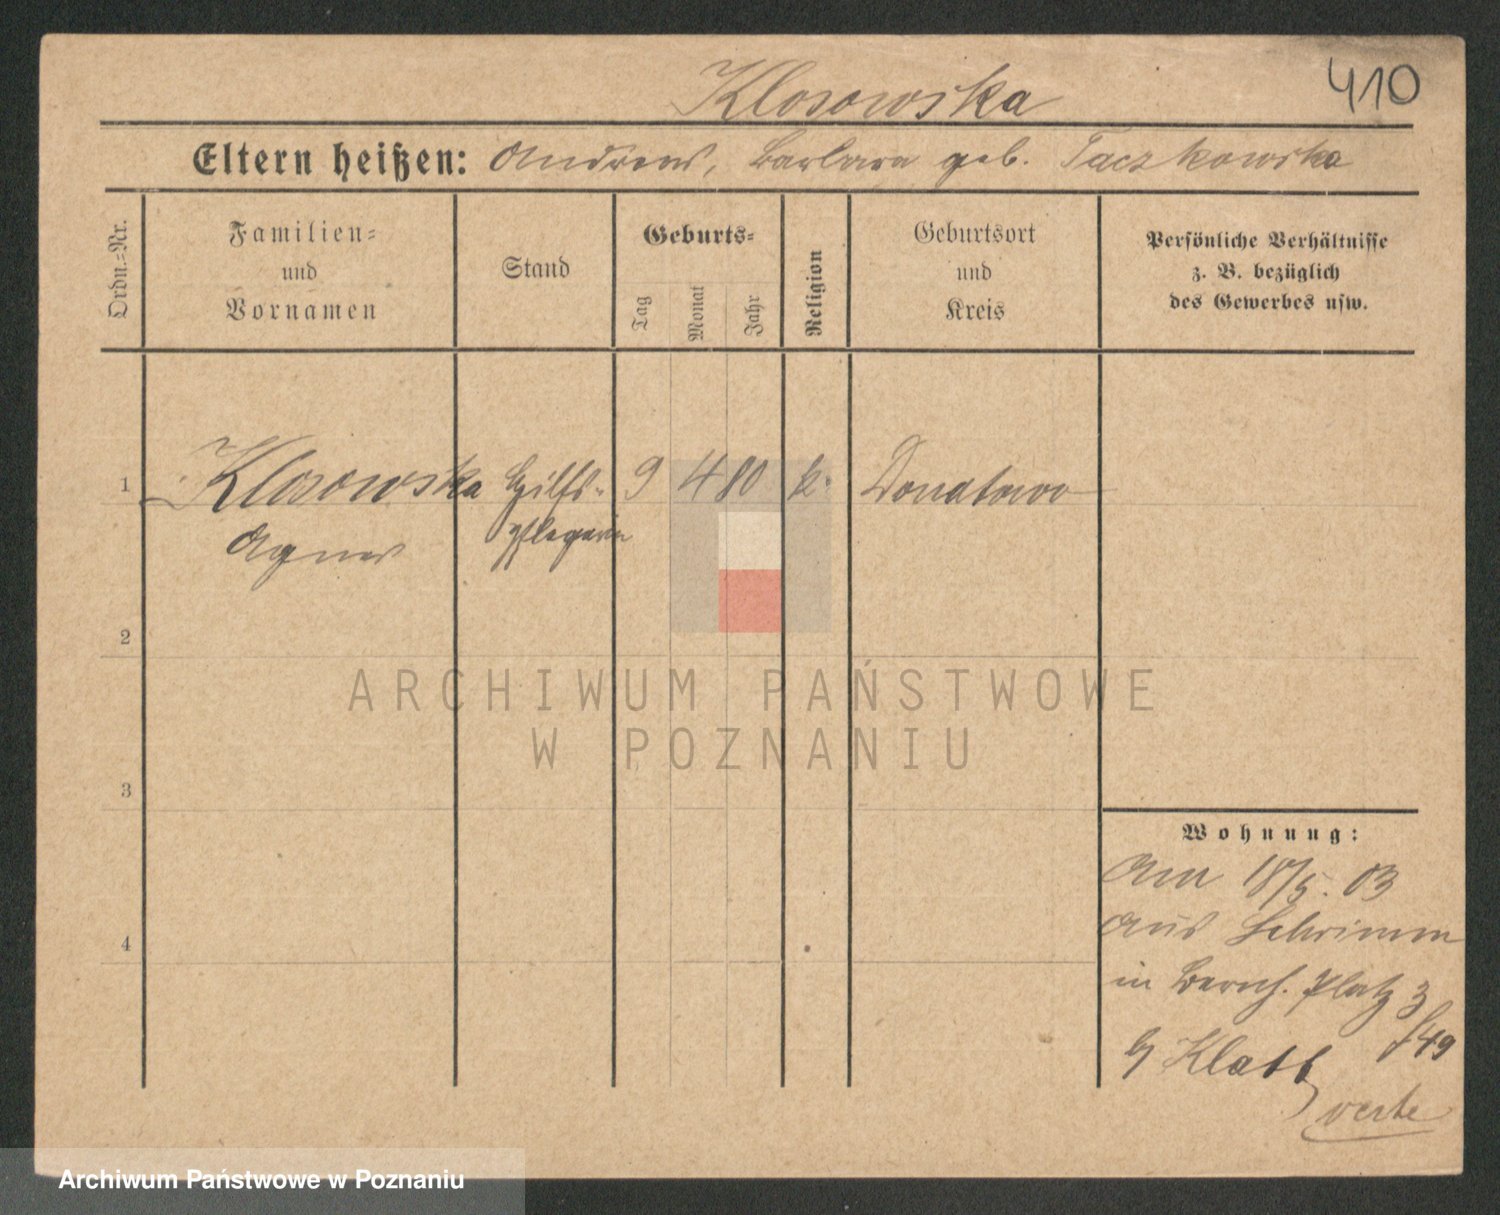 Klosowska
410
Eltern heißen: Andreas, Barbara geb. Taczkowska
Ordn.-Nr.
Familien-
und
Vornamen
Stand
Geburts-
Tag
Monat
Jahr
Religion
Geburtsort
und
Kreis
Persönliche Verhältnisse
z. B. bezüglich
des Gewerbes usw.
1 Klosowska Hilfs- 9 4 80 k. Donatowo
Agnes pflegerin
2
3
4
ARCHIWUM PAŃSTWOWE
W POZNANIU
Wohnung:
Am 18/5. 03
aus Schrimm
in Bernh. Platz 3
b/ Klatt f49
verte
Archiwum Państwowe w Poznaniu